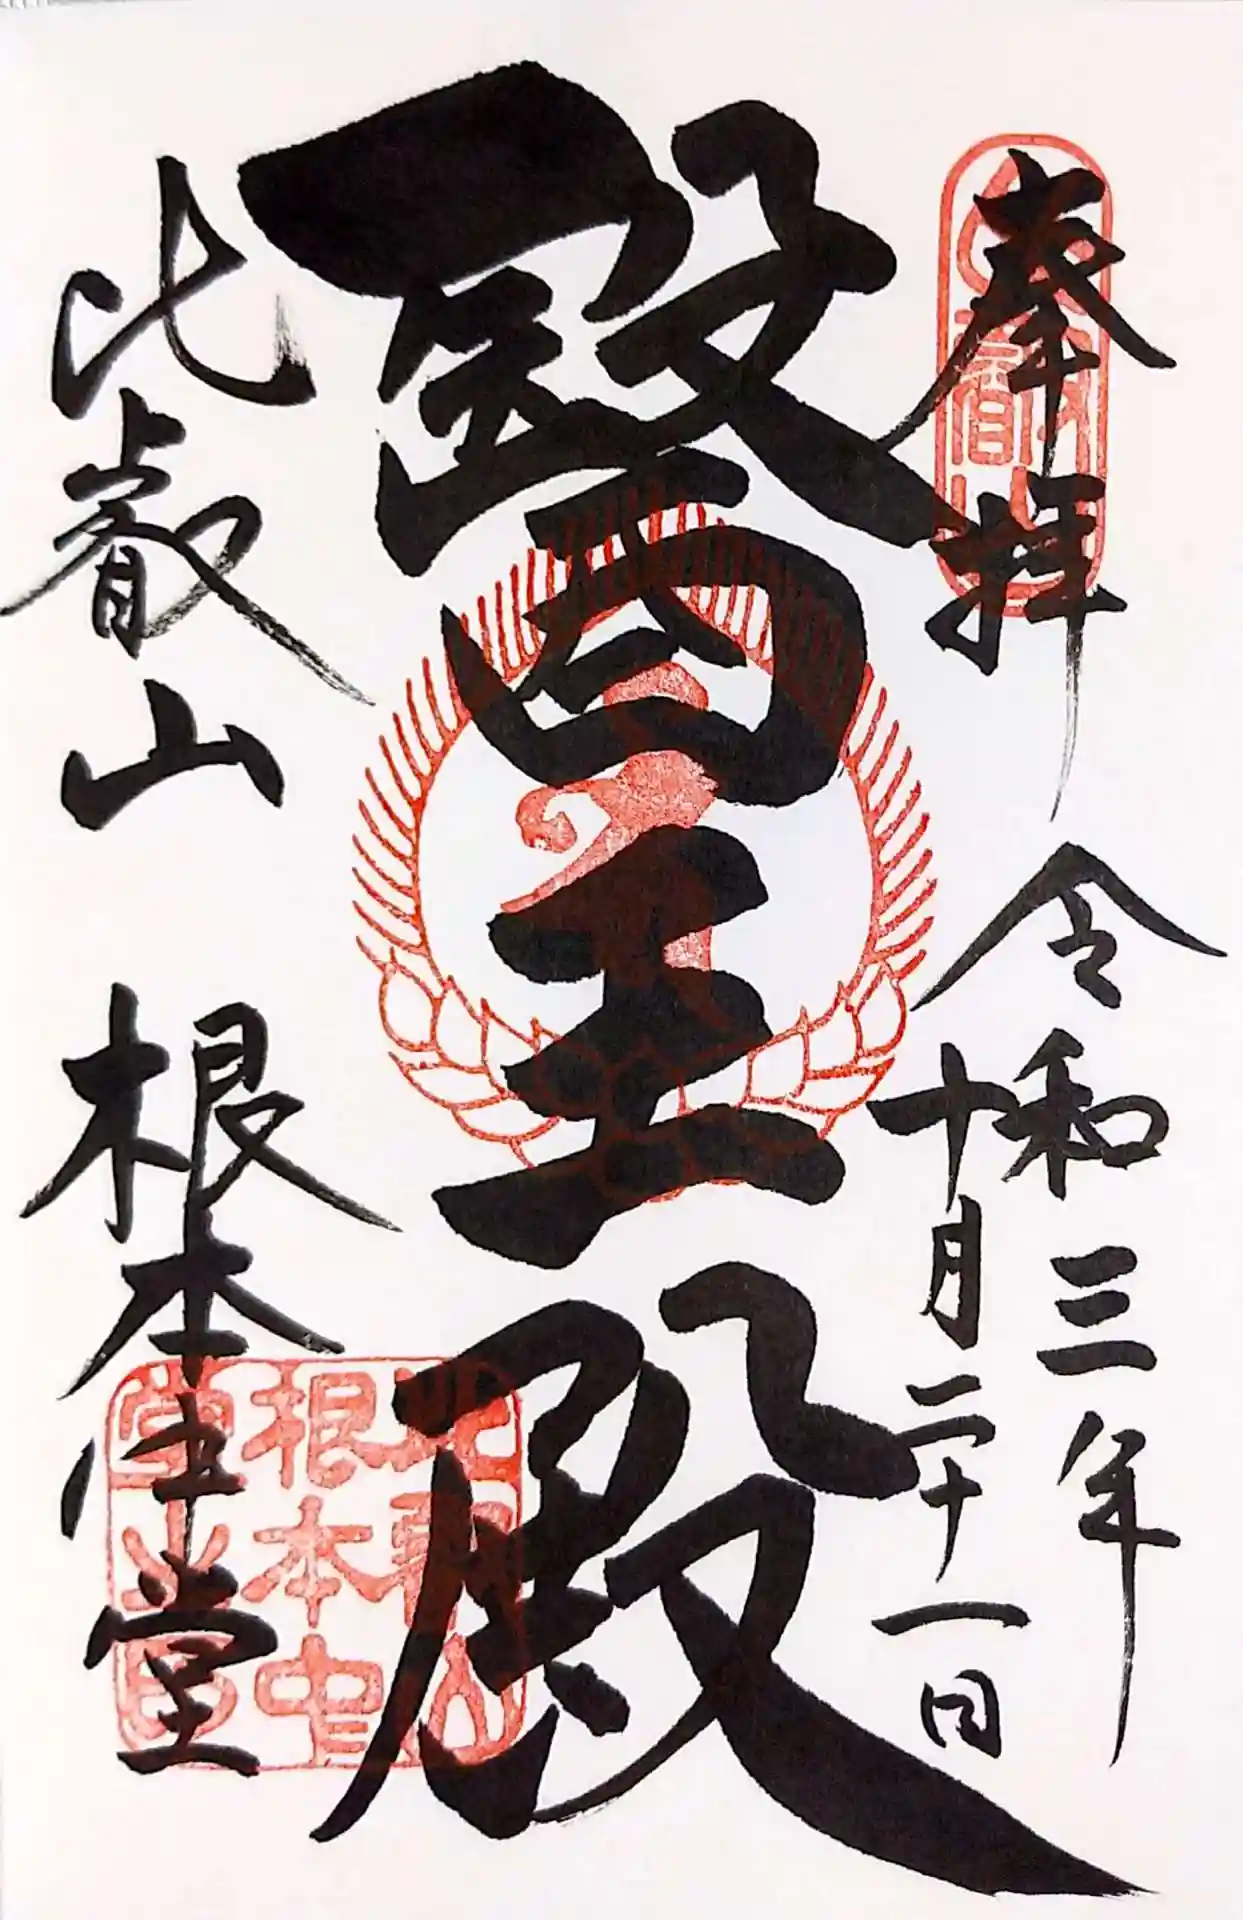 奉拝
令和三年
十月二十一日
醫王殿
比叡山 根本中堂
比叡山
根本中
堂之印